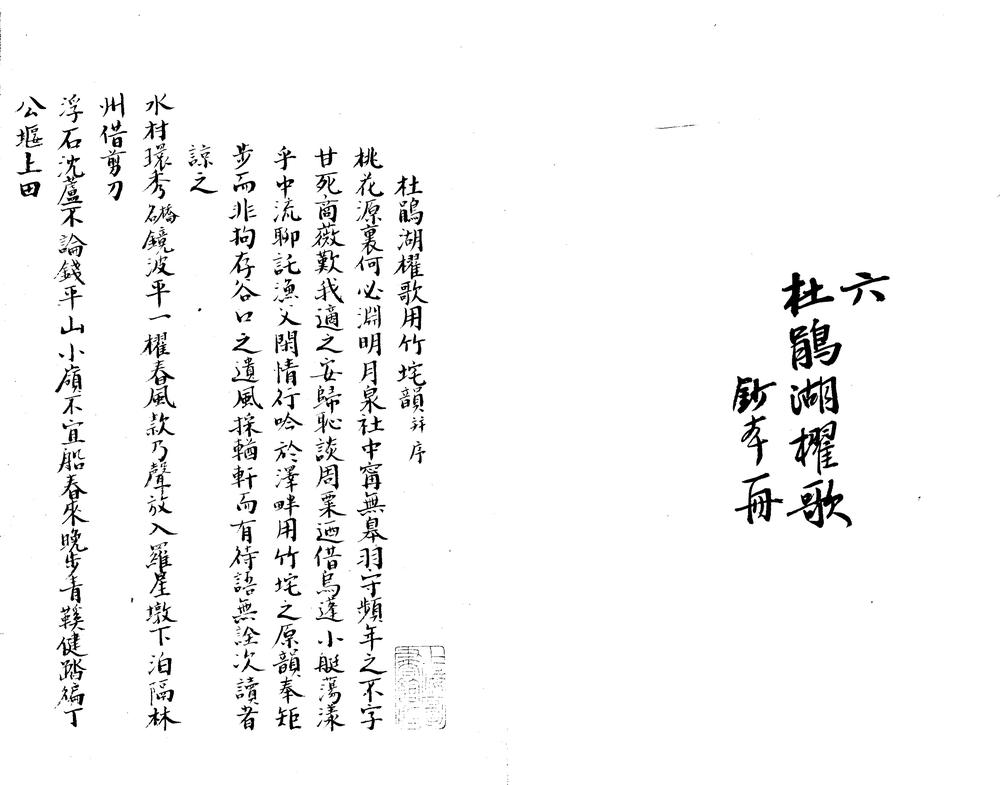 六
杜鵑湖櫂歌
鈔本一冊
杜鵑湖櫂歌用竹垞韻并序
桃花源裏何必淵明月泉社中甯無皋羽守頻年之不字
甘死商薇歎我適之安歸恥談周粟迺借烏蓬小艇蕩漾
乎中流聊託漁父閒情行吟於澤畔用竹垞之原韻奉矩
步而非拘存谷口之遺風採輶軒而有待語無詮次讀者
諒之
水村環秀礄鏡波平一櫂春風款乃聲放入羅星墩下泊隔林
州借剪刀
浮石沈蘆不論錢平山小嶺不宜船春來晚步青鞵健踏徧丁
公堰上田